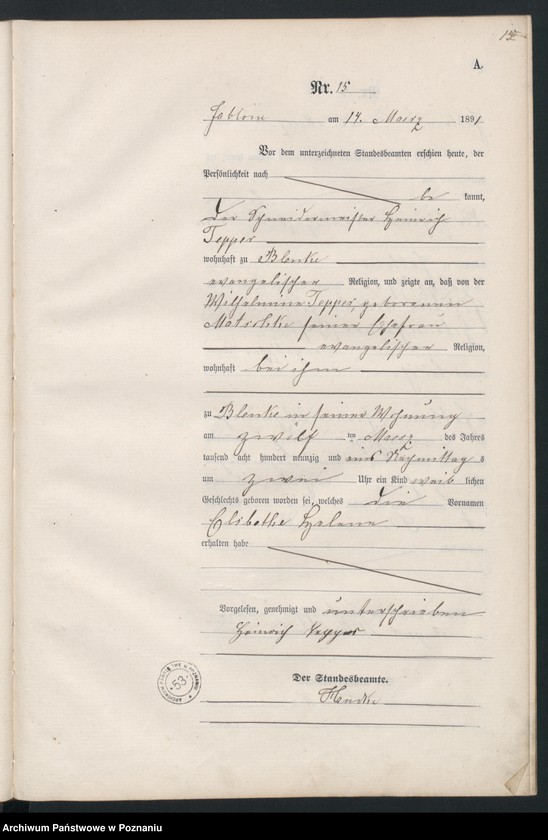 A.
Nr. 15
Jablone am 14. Maerz 1891
Vor dem unterzeichneten Standesbeamten erschien heute, der
Persönlichkeit nach
be kannt,
der Schneidermeister Heinrich
Tepper
wohnhaft zu Blenke
evangelischer Religion, und zeigte an, daß von der
Wilhelmine Tepper geborenen
Matschke seiner Ehefrau
evangelischer Religion,
wohnhaft bei ihm
zu Blenke in seiner Wohnung
am zwölf ten Maerz des Jahres
tausend acht hundert neunzig und eins Nachmittag s
um zwei Uhr ein Kind weib lichen
Geschlechts geboren worden sei, welches die Vornamen
Elsbethe Helene
erhalten habe
Vorgelesen, genehmigt und unterschrieben
Heinrich Tepper
Der Standesbeamte.
ARCHIWUM PAŃSTWOWE W POZNANIU
53
Archiwum Państwowe w Poznaniu